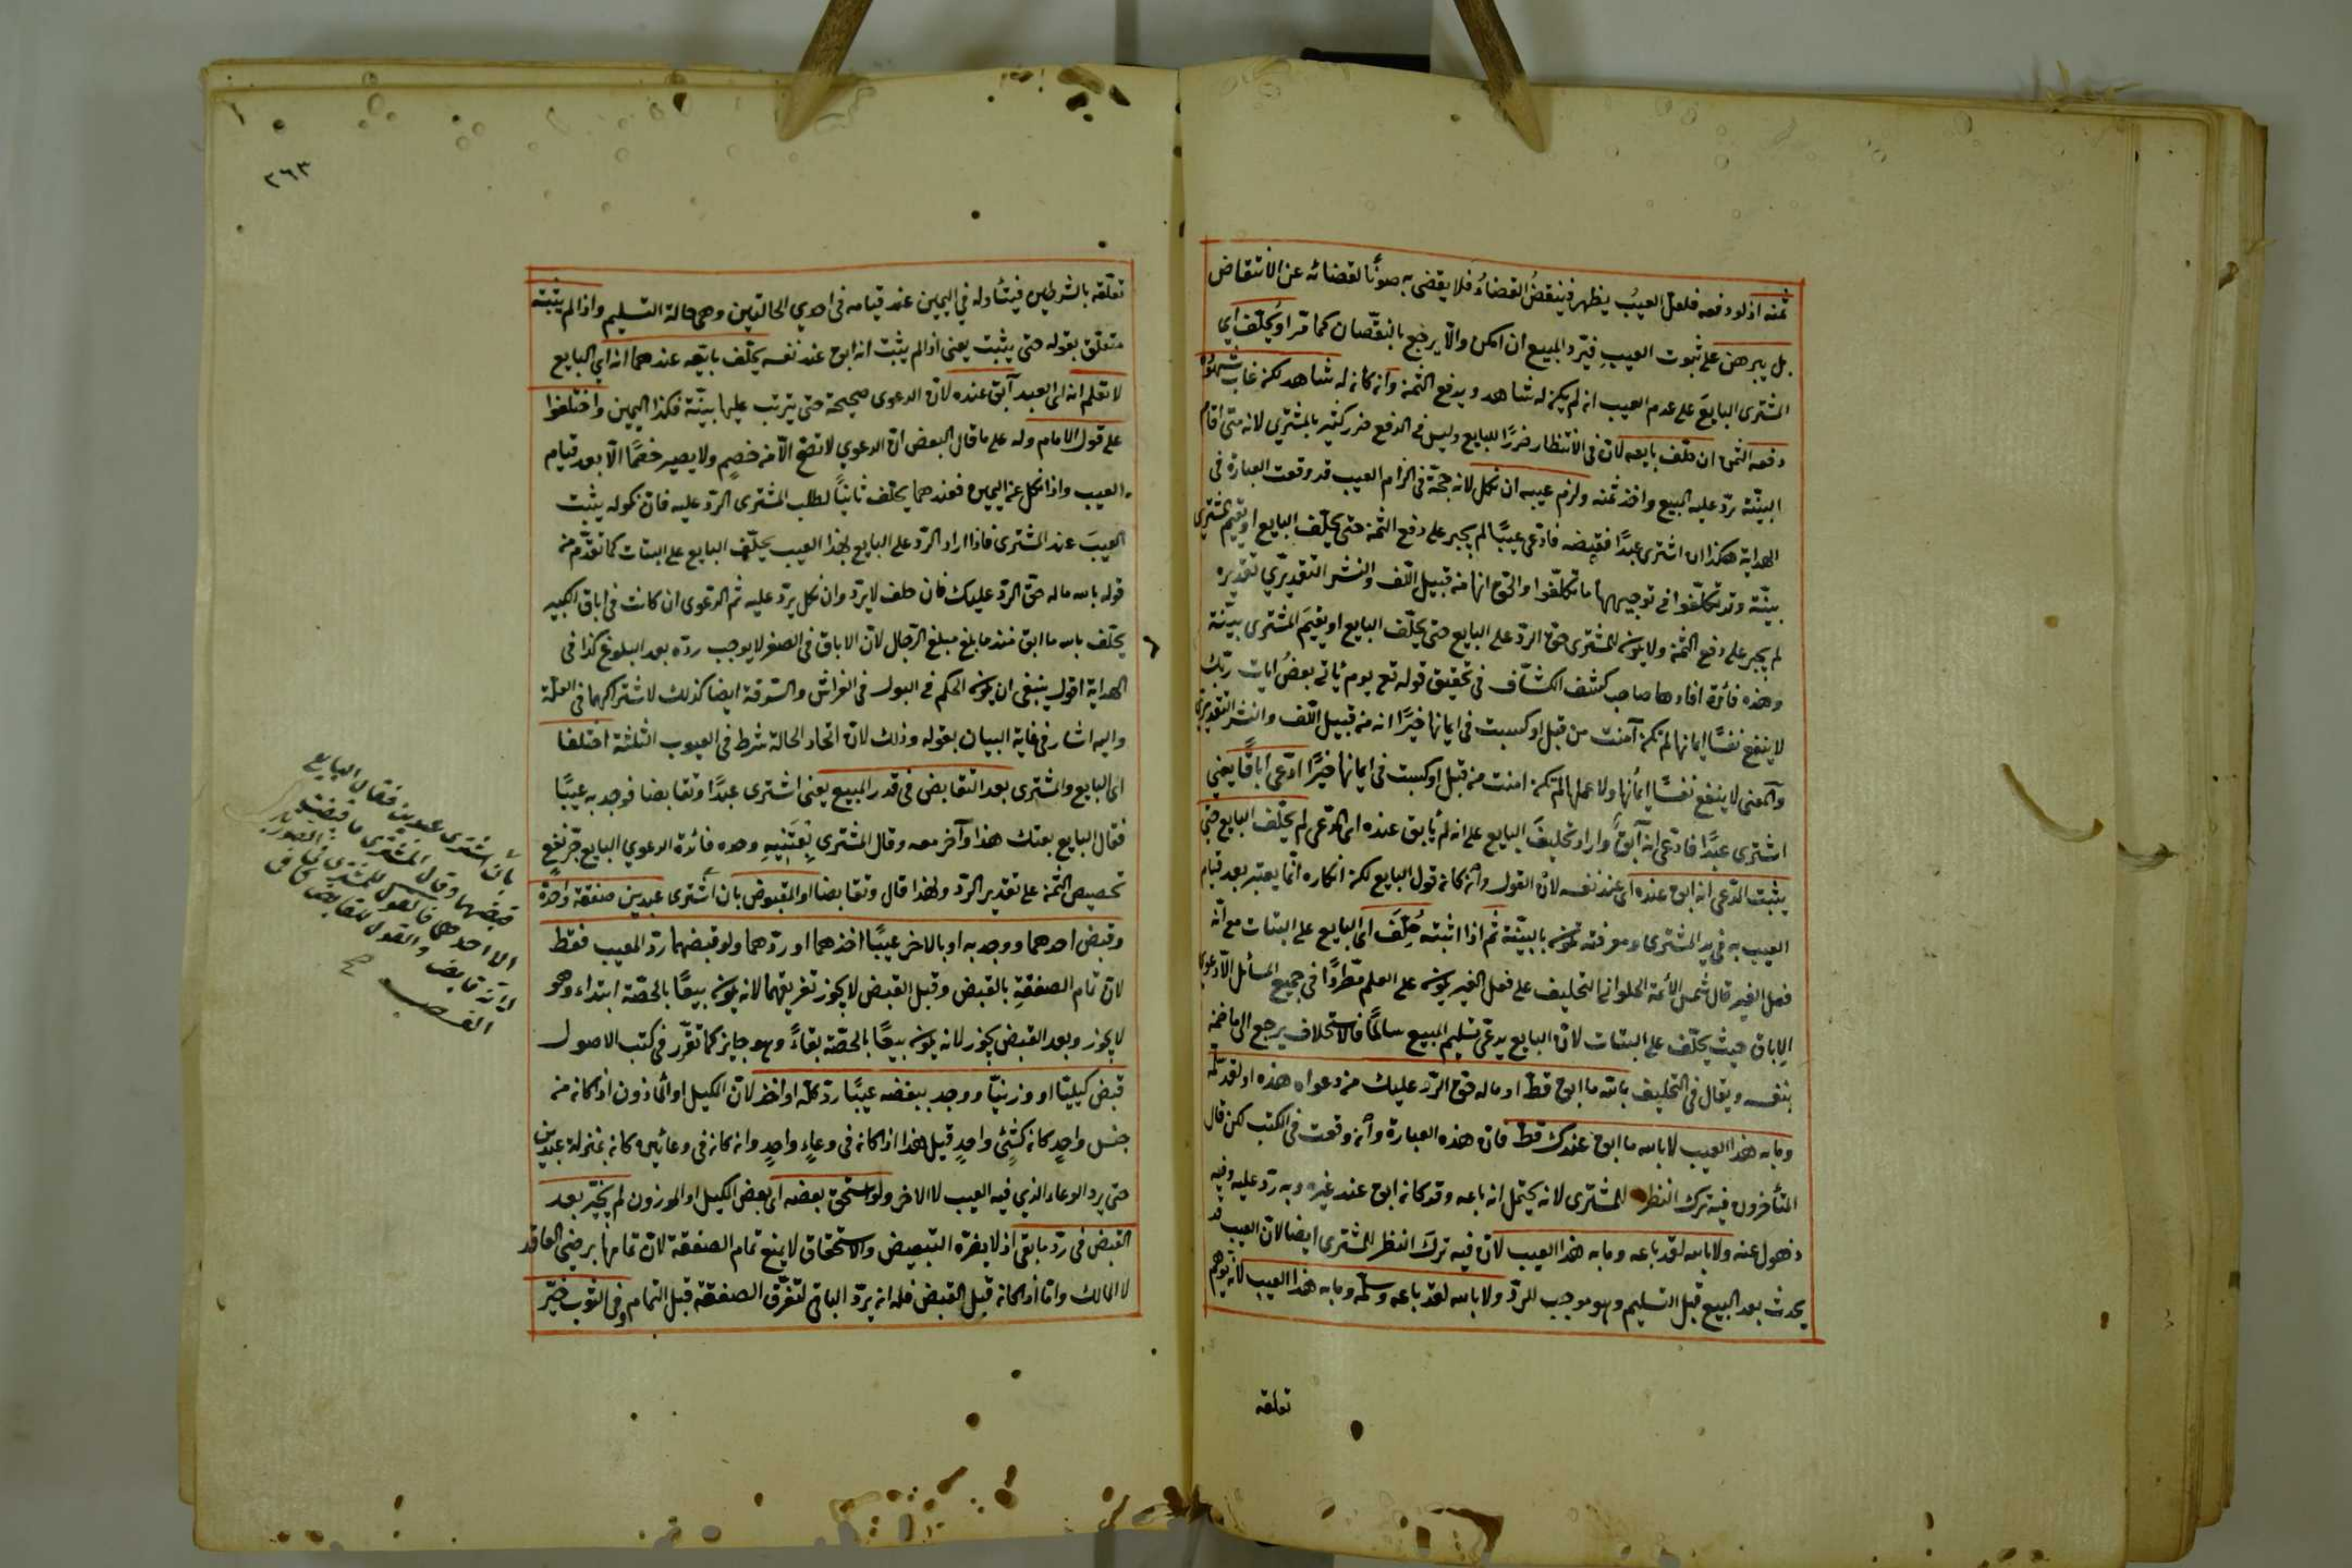 ثمنه اذ لو دفعه فلعلّ العيبُ يظهر فينتقضُ القضاءُ فلا يقضى به صونًا لقضائه عن الانتقاض
بل يبرهن على ثبوت العيبِ فيردّ المبيع ان امكن والّا يرجع بالنقصان كما مرّ او يُحلّف اى
المشترى البايعَ على عدم العيب ان لم يكن له شاهد ويدفع الثمن وان كان له شاهد لكن غاب شهوده
دفعه الثمن ان حلف بايعه لان فى الانتظار ضررًا للبايع وليس فى الدفع ضرر كثير بالمشترى لانه متى اقام
البيّنة ردّ عليه المبيع واخذ ثمنه ولزم عيبه ان نكل لانه حجّة فى الزام العيب قد وقعت العبارة فى
الهداية هكذا ان اشترى عبدًا فقبضه فادّعى عيبًا لم يجبر على دفع الثمن حتى يحلّف البايع او يقيم المشترى
بيّنة وقد تكلّفوا فى توجيهها ما تكلّفوا والحق انها من قبيل اللّف والنشر التقديرى تقديره
لم يجبر على دفع الثمن ولا يكون للمشترى حق الردّ على البايع حتى يحلّف البايع او يقيمَ المشترى بيّنة
وهذه فائدة افادها صاحب كشف الكشّاف فى تحقيق قوله تع يوم يأتى بعضُ ايات ربّك
لا ينفع نفسًا ايمانها لم تكن آمنت من قبل او كسبت فى ايمانها خيرًا انه من قبيل اللّف والنشر التقديرى
والمعنى لا ينفع نفسًا ايمانُها ولا عملها لم تكن امنت من قبل او كسبت فى ايمانها خيرًا ادّعى اباقًا يعنى
اشترى عبدًا فادّعى انه آبقٌ واراد تحليفَ البايع على انه لم يأبق عنده اى المدّعى لم يحلّف البايع حتى
يثبت المدّعى انه ابق عنده اى عند نفسه لان القول وان كان قول البايع لكن انكاره انّما يعتبر بعد قيام
العيب به فى يد المشترى ومعرفته تكون بالبيّنة ثم اذا اثبته حُلّفَ اى البايع على البتات مع انّه
فعل الغير قال شمس الأئمة الحلوانى التحليف على فعل الغير يكون على العلم مطّردًا فى جميع المسائل الّا دعوى
الاباق حيث يحلّف على البتات لان البايع يدّعى تسليم المبيع سالمًا فالاستحلاف يرجع الى ما ضمن
بنفسه ويقال فى التحليف باللّه ما ابق قطّ او ما له حق الردّ عليك من دعواه هذه او لقد سلّمه
وما به هذا العيب لا بالله ما ابق عندك قطّ فان هذه العبارة وان وقعت فى الكتب لكن قال
المتأخرون فيه ترك النظر للمشترى لانه يحتمل انه باعه وقد كان ابق عند غيره وبه ردّ عليه وفيه
ذهول عنه ولا بالله لقد باعه وما به هذا العيب لان فيه ترك النظر للمشترى ايضا لان العيب قد
يحدث بعد البيع قبل التسليم وهو موجب للردّ ولا بالله لقد باعه وسلّمه وما به هذا العيب لانه يوهم
تعلقه
٢٦٣
تعلّقه بالشرطين فيتأوله فى اليمين عند قيامه فى احدى الحالتين وهى حالة التسليم واذا لم يثبته
متعلّق بقوله حتى يثبت يعنى اذا لم يثبت انه ابق عند نفسه يحلّف بايعه عندهما انه اى البايع
لا تعلم انه اى العبد آبق عنده لان الدعوى صحيحة حتى يترتب عليها بيّنة فكذا اليمين واختلفوا
على قول الامام وله على ما قال البعض ان الدعوى لا تصحّ الّا من خصمٍ ولا يصير خصمًا الّا بعد قيام
العيب واذا نكل عن اليمين فعندهما يحلّف ثانيًا لطلب المشترى الردّ عليه فان نكوله يثبت
العيبَ عند المشترى فاذا اراد الردّ على البايع بهذا العيب يحلّف البايع على البتات كما تقدّم من
قوله بالله ماله حق الردّ عليك فان حلف لا يردّ وان نكل يردّ عليه ثم الدعوى ان كانت فى اباق الكبير
يحلّف بالله ما ابق منذ ما بلغ مبلغ الرّجال لان الاباق فى الصغر لا يوجب ردّه بعد البلوغ كذا فى
الهداية اقول ينبغى ان يكون الحكم فى البول فى الفراش والسرقة ايضا كذلك لاشتراكهما فى العلّة
واليه اشار فى غاية البيان بقوله وذلك لان اتحاد الحالة شرط فى العيوب الثلثة اختلفا
اى البايع والمشترى بعد التقابض فى قدر المبيع يعنى اشترى عبدًا وتقابضا فوجد به عيبًا
فقال البايع بعتك هذا وآخر معه وقال المشترى بعتنيه وحده فائدة الدعوى البايع جرّ نفعٍ
تحصيص الثمن على تقدير الردّ ولهذا قال وتقابضا او المقبوض بان اشترى عبدين صفقة واحدة
وقبض احدهما ووجد به او بالاخر عيبًا اخذهما او ردّهما ولو قبضهما ردّ المعيب فقط
لان تمام الصفقةِ بالقبض وقبل القبض لا يجوز تفريقهما لانه يكون بيعًا بالحصّة ابتداء وهو
لا يجوز وبعد القبض يجوز لانه يكون بيعًا بالحصّة بقاءً وهو جايز كما تقرّر فى كتب الاصول
قبض كيليّا او وزنيّا ووجد ببعضه عيبًا ردّ كلّه او اخذ لان الكيل او الموزون اذا كان من
جنس واحدٍ كان كشئٍ واحدٍ قيل هذا اذا كان فى وعاءٍ واحدٍ وان كان فى وعائين كان بمنزلة عبدين
حتى يرد الوعاء الذى فيه العيب لا الاخر ولو استحق بعضه اى بعض الكيل او الموزون لم يخيّر بعد
القبض فى ردّ ما بقى اذ لا يضرّه التبعيض والاستحقاق لا يمنع تمام الصفقة لان تمامها برضى العاقد
لا المالك وامّا اذا كان قبل القبض فله ان يردّ الباقى لتفرّق الصفقة قبل التمام وفى الثوب خيّر
بأن اشترى عبدين فقال البايع
قبضهما وقال المشترى ما قبضت
الا احدهما فالقول للمشترى فى الصورتين
لانه قابض والقول للقابض كما فى
الغصب صح